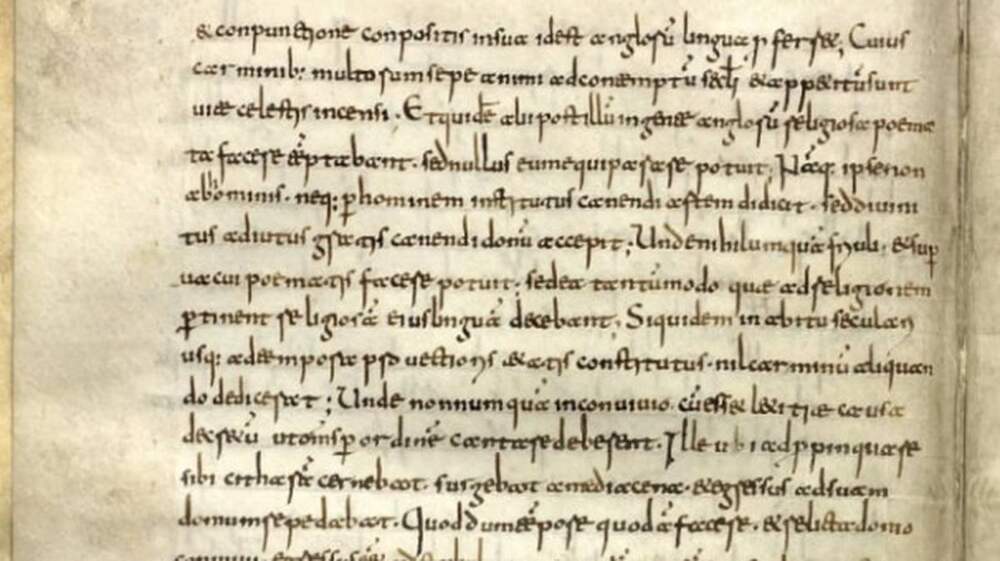 & conpunctione conpositis in sua id est anglorũ lingua ꝓferret; Cuius
carminib; multorum sepe animi ad contemptũ sc̄li & appetitũ sunt
uitae celestis incensi. Et quidē alii post illũ in gente anglorũ religiosa poema
ta facere tẽptabant. sed nullus eum equiparare potuit; Nãq; ipse non
ab hominis. neq; ꝑ hominem institutus canendi artem didicit. sed diuini
tus adiutus gratis canendi donũ accepit; Unde nihil umquã friuoli & suꝑ
uacui poematis facere potuit. sed ea tantũmodo quae ad religionem
ꝑtinent religiosã eius linguã decebant; Siquidem in abitu seculari
usq; ad tempora prouectioris aetatis constitutus. nil carminũ aliquan
do dedicerat; Unde nonnumquã in conuiuio. cũ esset laetitiae causa
decretũ ut om̃s ꝑ ordinẽ cantare deberent. Ille ubi adꝓpinquare
sibi citharã cernebat. surgebat a media cena. & egressus ad suam
domum sepe dabat. Quod dum tẽpore quodã faceret. & relicta domo